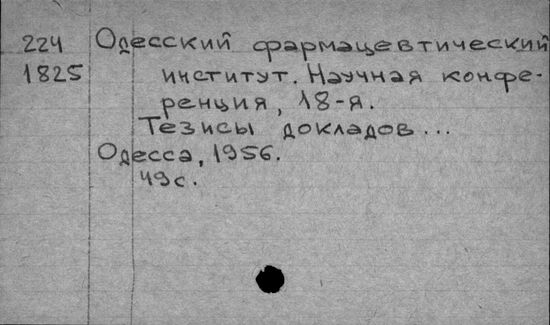 224 Одесский фармацевтический
1825 институт. Научная конфе-
ренция, 18-я.
Тезисы докладов...
Одесса, 1956.
49с.